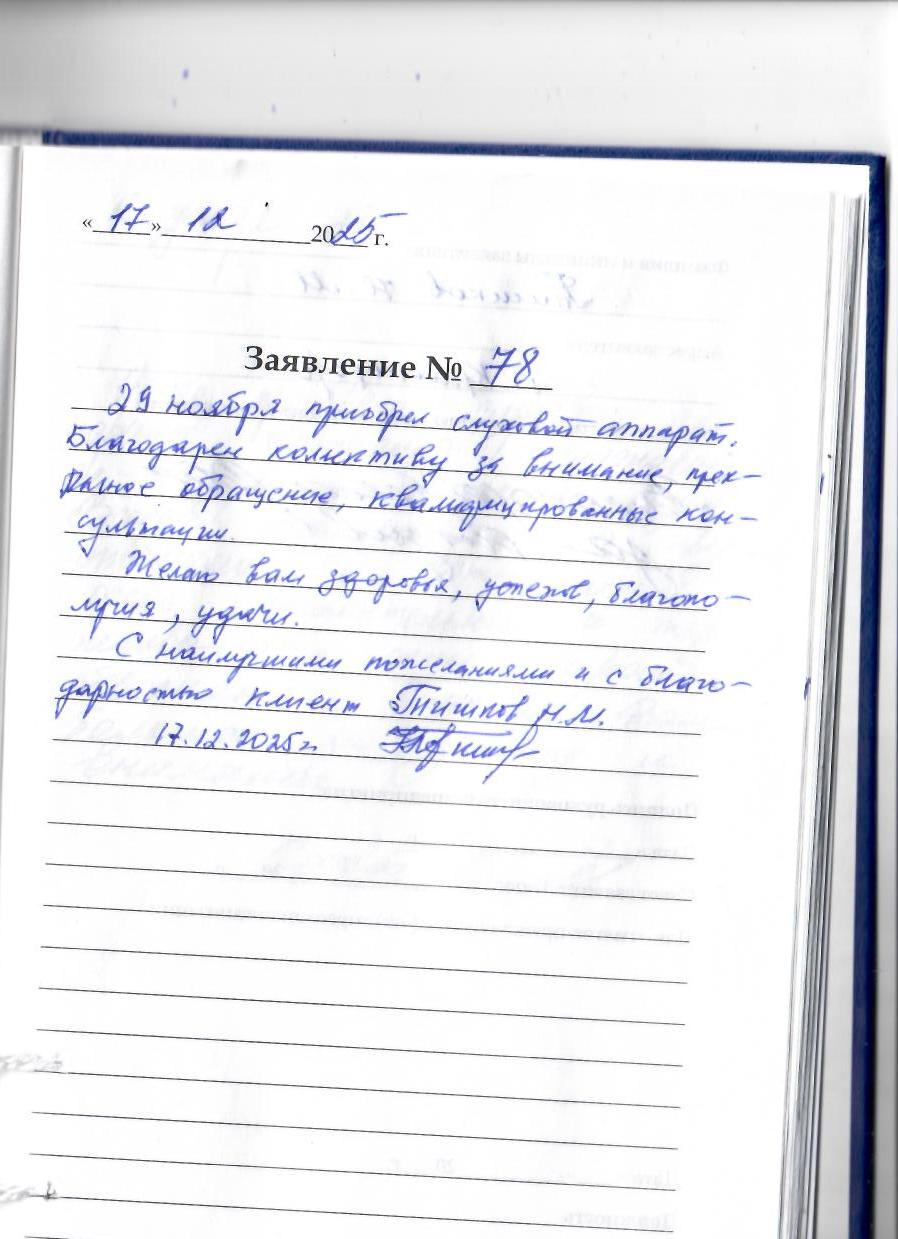 «17» 12 2025 г.
Заявление № 78
29 ноября приобрел слуховой аппарат.
Благодарен колективу за внимание, прек-
расное обращение, квалифицированные кон-
сультации.
Желаю вам здоровья, успехов, благопо-
лучия, удачи.
С наилучшими пожеланиями и с благо-
дарностью клиент Тишков Н.М.
17.12.2025г.